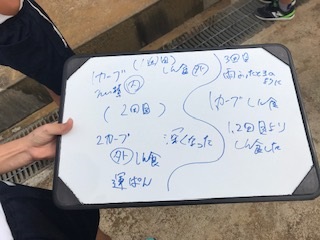 (1回目)
1カーブ しん食 外
たい積 内
(2回目)
2カーブ 深くなった
外 しん食
運ぱん
3回目
雨ふったときの
1カーブ しん食
1,2回目より
しん食した